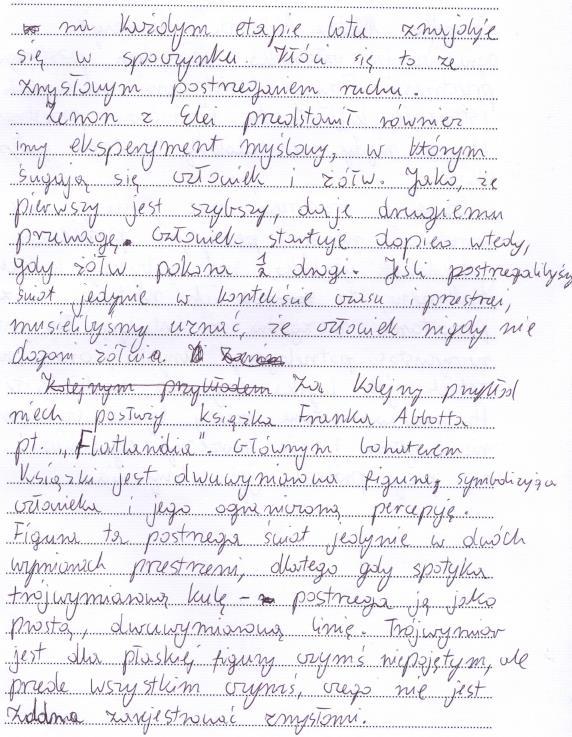 na każdym etapie lotu znajduje
się w spoczynku. Kłóci się to ze
zmysłowym postrzeganiem ruchu.
Zenon z Elei przedstawił również
inny eksperyment myślowy, w którym
ścigają się człowiek i żółw. Jako, że
pierwszy jest szybszy, daje drugiemu
przewagę. Człowiek startuje dopiero wtedy,
gdy żółw pokona 1/2 drogi. Jeśli postrzegalibyśmy
świat jedynie w kontekście czasu i przestrzeni,
musielibyśmy uznać, że człowiek nigdy nie
dogoni żółwia.
Kolejnym przykładem Za kolejny przykład
niech posłuży książka Franka Abbotta
pt. „Flatlandia". Głównym bohaterem
książki jest dwuwymiarowa figura, symbolizująca
człowieka i jego ograniczoną percepcję.
Figura ta postrzega świat jedynie w dwóch
wymiarach przestrzeni, dlatego gdy spotyka
trójwymiarową kulę - postrzega ją jako
prostą, dwuwymiarową linię. Trójwymiar
jest dla płaskiej figury czymś niepojętym, ale
przede wszystkim czymś, czego nie jest
zdolna zarejestrować zmysłami.